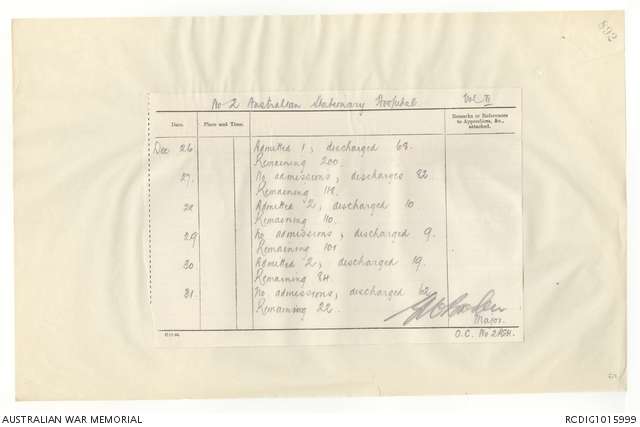 892
No 2 Australian Stationary Hospital Vol VI
Date. Place and Time. Remarks or References to Appendices, &c., attached.
Dec 26 Admitted 1, discharged 68.
Remaining 200.
27. No admissions, discharges 82.
Remaining 118.
28 Admitted 2, discharged 10
Remaining 110.
29 No admissions, discharged 9.
Remaining 101
30 Admitted 2, discharged 19.
Remaining 84.
31. No admissions, discharged 62
Remaining 22.
Major.
O.C. No 2 ASH.
AUSTRALIAN WAR MEMORIAL RCDIG1015999